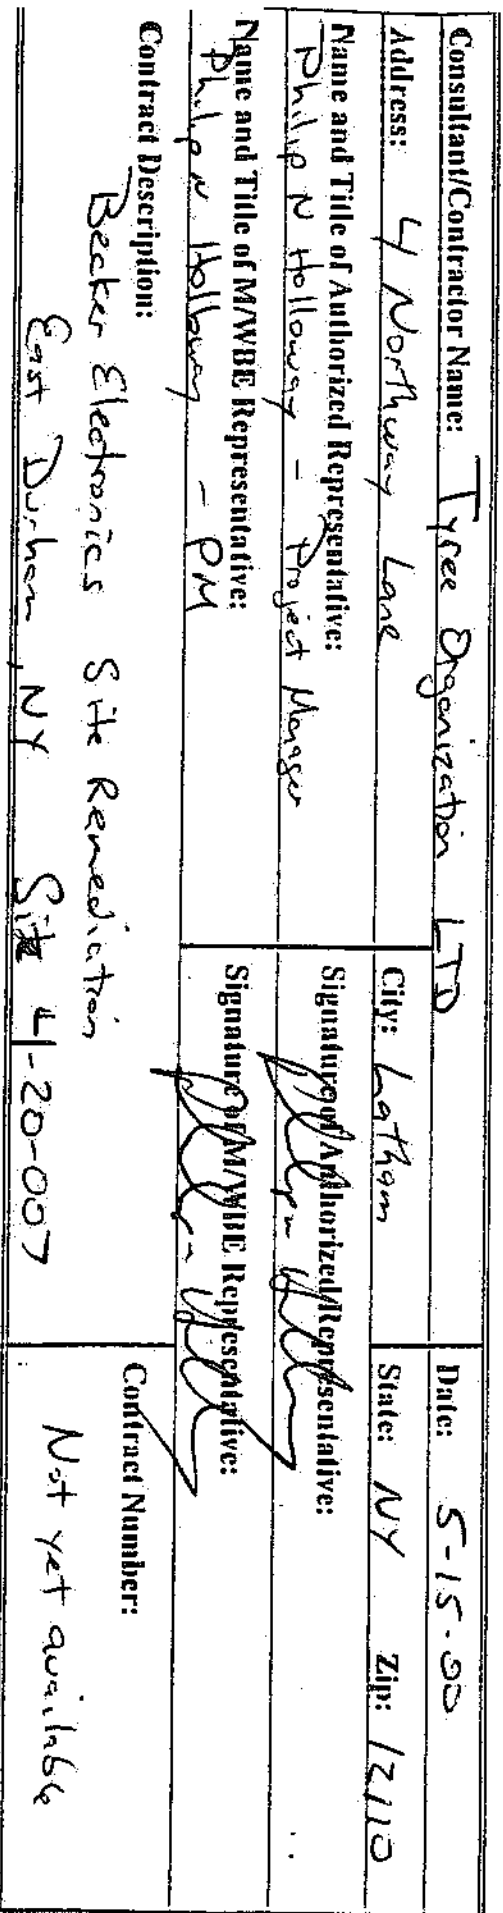 Consultant/Contractor Name: Tyree Organization LTD
Date: 5-15-00
Address: 4 Northway Lane
City: Latham
State: NY Zip: 12110
Name and Title of Authorized Representative:
Philip N Holloway - Project Manager
Signature of Authorized Representative:
Name and Title of M/WBE Representative:
Philip N Holloway - PM
Signature of M/WBE Representative:
Contract Description:
Becker Electronics Site Remediation
East Durham, NY Site 4-20-007
Contract Number:
Not yet available